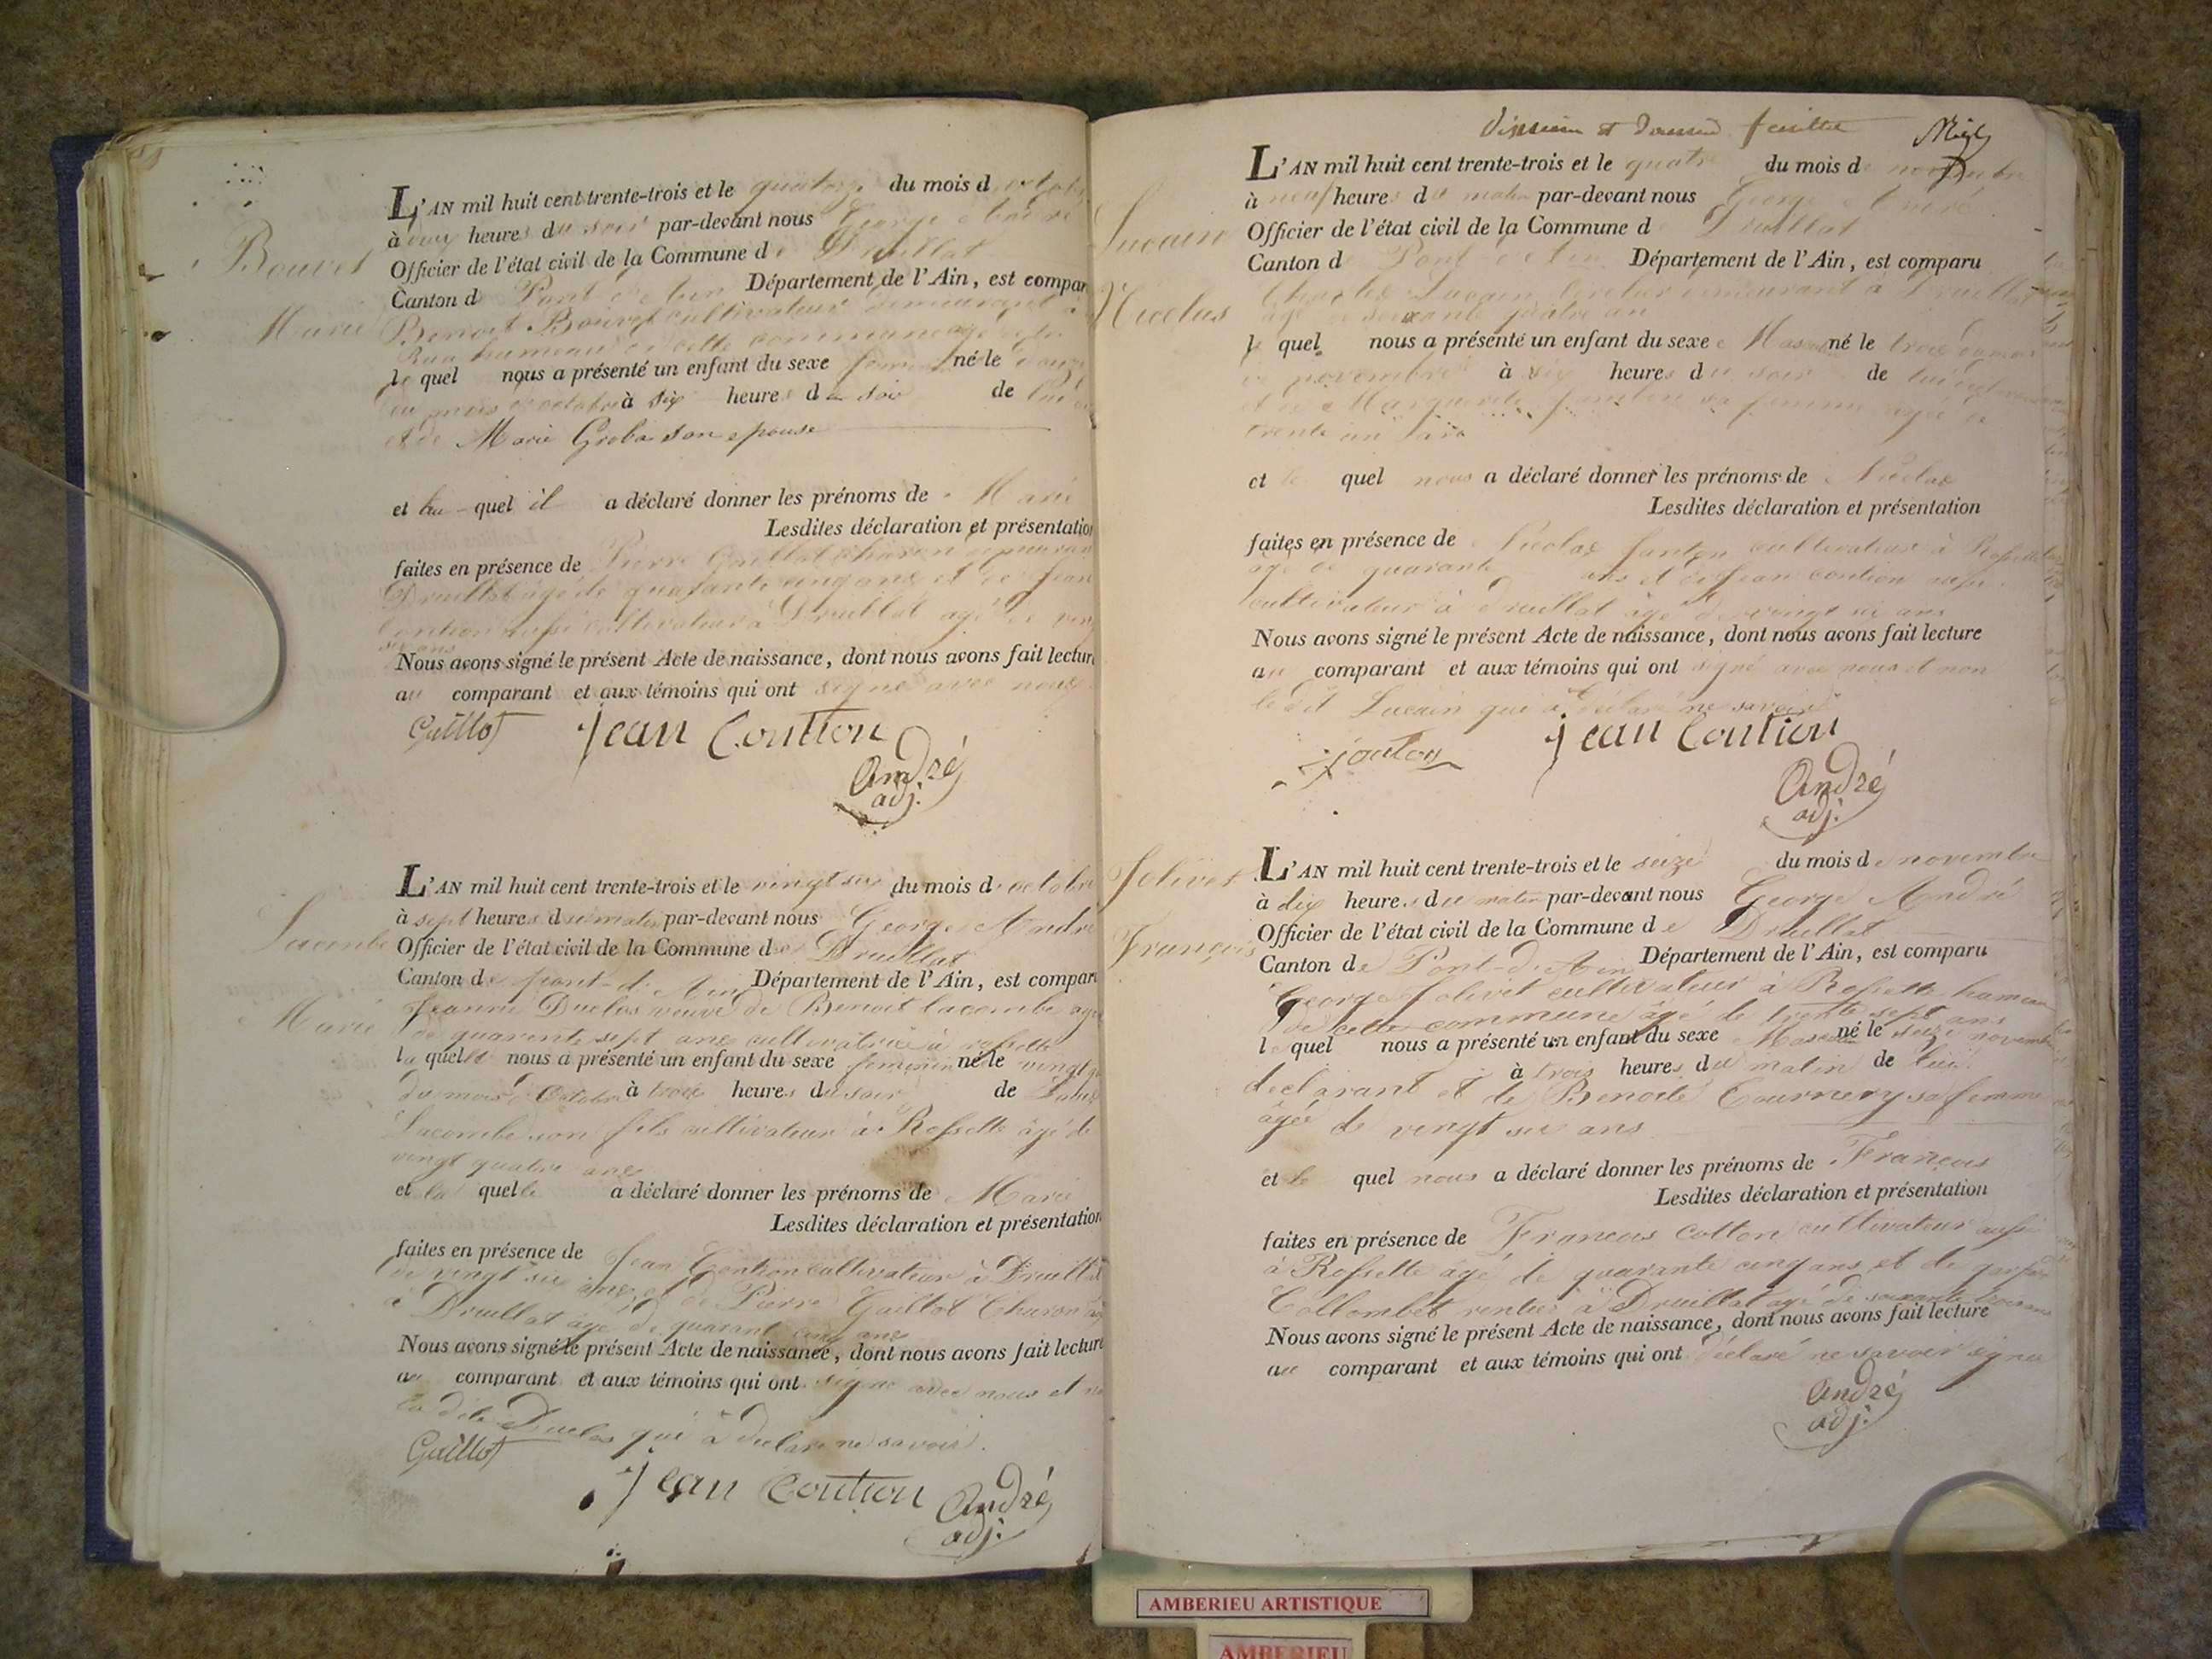 Bouvet
Marie
L'AN mil huit cent trente-trois et le quatorze du mois d'octobre
à heures du soir par-devant nous George André
Officier de l'état civil de la Commune de Druillat
Canton de Pont d'Ain Département de l'Ain, est compar
Benoit Bouvet cultivateur demeurant à
hameau de cette commune agé
le quel nous a présenté un enfant du sexe feminin né le douze
du mois d'octobre à six heures du soir de lui
et de Marie Groba son epouse
et quel il a déclaré donner les prénoms de Marie
Lesdites déclaration et présentation
faites en présence de Pierre Guillot charon demeurant
Druillat agé de quarante cinq ans et de Jean
Contion aussi cultivateur à Druillat agé de ving
six ans
Nous avons signé le présent Acte de naissance, dont nous avons fait lectur
au comparant et aux témoins qui ont signé avec nous
Guillot Jean Contion
André
adj.
Lacombe
Marie
L'AN mil huit cent trente-trois et le vingt six du mois d'octobre
à sept heures du matin par-devant nous George André
Officier de l'état civil de la Commune de Druillat
Canton de pont-d'Ain Département de l'Ain, est compar
Jeanne Duclos veuve de Benoit Lacombe agé
de quarente sept ans cultivatrice à rossette
la quelle nous a présenté un enfant du sexe feminin né le vingt
du mois d'Octobre à trois heures du soir de Louis
Lacombe son fils cultivateur à Rossette âgé de
vingt quatre ans
et la quelle a déclaré donner les prénoms de Marie
Lesdites déclaration et présentation
faites en présence de Jean Contion cultivateur à Druillat
de vingt six ans et de Pierre Guillot Charon
à Druillat âgé de quarant cinq ans
Nous avons signé le présent Acte de naissance, dont nous avons fait lectur
au comparant et aux témoins qui ont signé avec nous et
la dite Duclos qui à declaré ne savoir.
Guillot
Jean Contion André
adj.
feuillet
Lucain
Nicolas
L'AN mil huit cent trente-trois et le quatre du mois de novembre
à neuf heures du matin par-devant nous George André
Officier de l'état civil de la Commune de Druillat
Canton de Pont d'Ain Département de l'Ain, est comparu
Charles Lucain demeurant à Druillat
agé de soixante quatre an
le quel nous a présenté un enfant du sexe Masculin né le trois du mois
de novembre à six heures du soir de lui declarant
et de Marguerite sa femme agée de
trente un ans
et le quel nous a déclaré donner les prénoms de Nicolas
Lesdites déclaration et présentation
faites en présence de Nicolas Janton cultivateur à Rossette
agé de quarante ans et de Jean contion aussi
cultivateur à druillat agé de vingt six ans
Nous avons signé le présent Acte de naissance, dont nous avons fait lecture
au comparant et aux témoins qui ont signé avec nous et non
le dit Lucain qui à déclaré ne savoir
Jean Contion
André
adj.
Jolivet
François
L'AN mil huit cent trente-trois et le seize du mois de novembre
à dix heures du matin par-devant nous George André
Officier de l'état civil de la Commune de Druillat
Canton de Pont-d'Ain Département de l'Ain, est comparu
George Jolivet cultivateur à Rossette hameau
de cette commune âgé de trente sept ans
le quel nous a présenté un enfant du sexe Masculin né le seize novembre
à trois heures du matin de lui
declarant et de Benoite Cournery sa femme
âgée de vingt six ans
et le quel nous a déclaré donner les prénoms de François
Lesdites déclaration et présentation
faites en présence de Francois Cotton cultivateur aussi
à Rossette âgé de quarante cinq ans et de
Collombet rentier à Druillat agé de soixante trois ans
Nous avons signé le présent Acte de naissance, dont nous avons fait lecture
au comparant et aux témoins qui ont déclaré ne savoir signer
André
adj.
AMBERIEU ARTISTIQUE
AMBERIEU